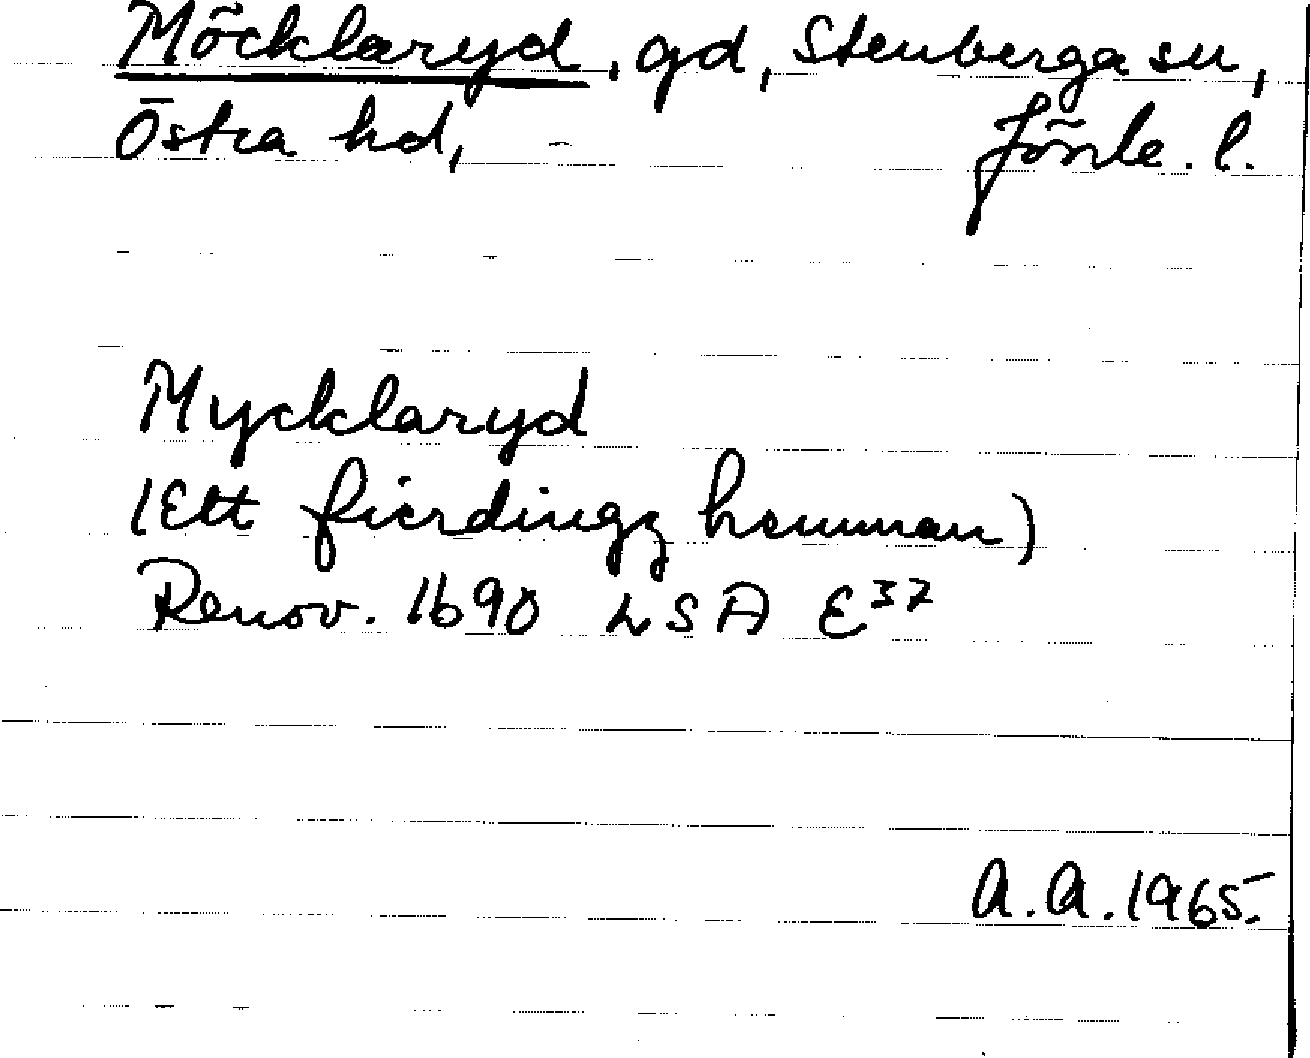 Möcklaryd, gd, Stenberga sn,
Östra hd, Jönk. l.
Mycklaryd
(Ett fierdingz hemman)
Renov. 1690 LSA E37
A.A. 1965.